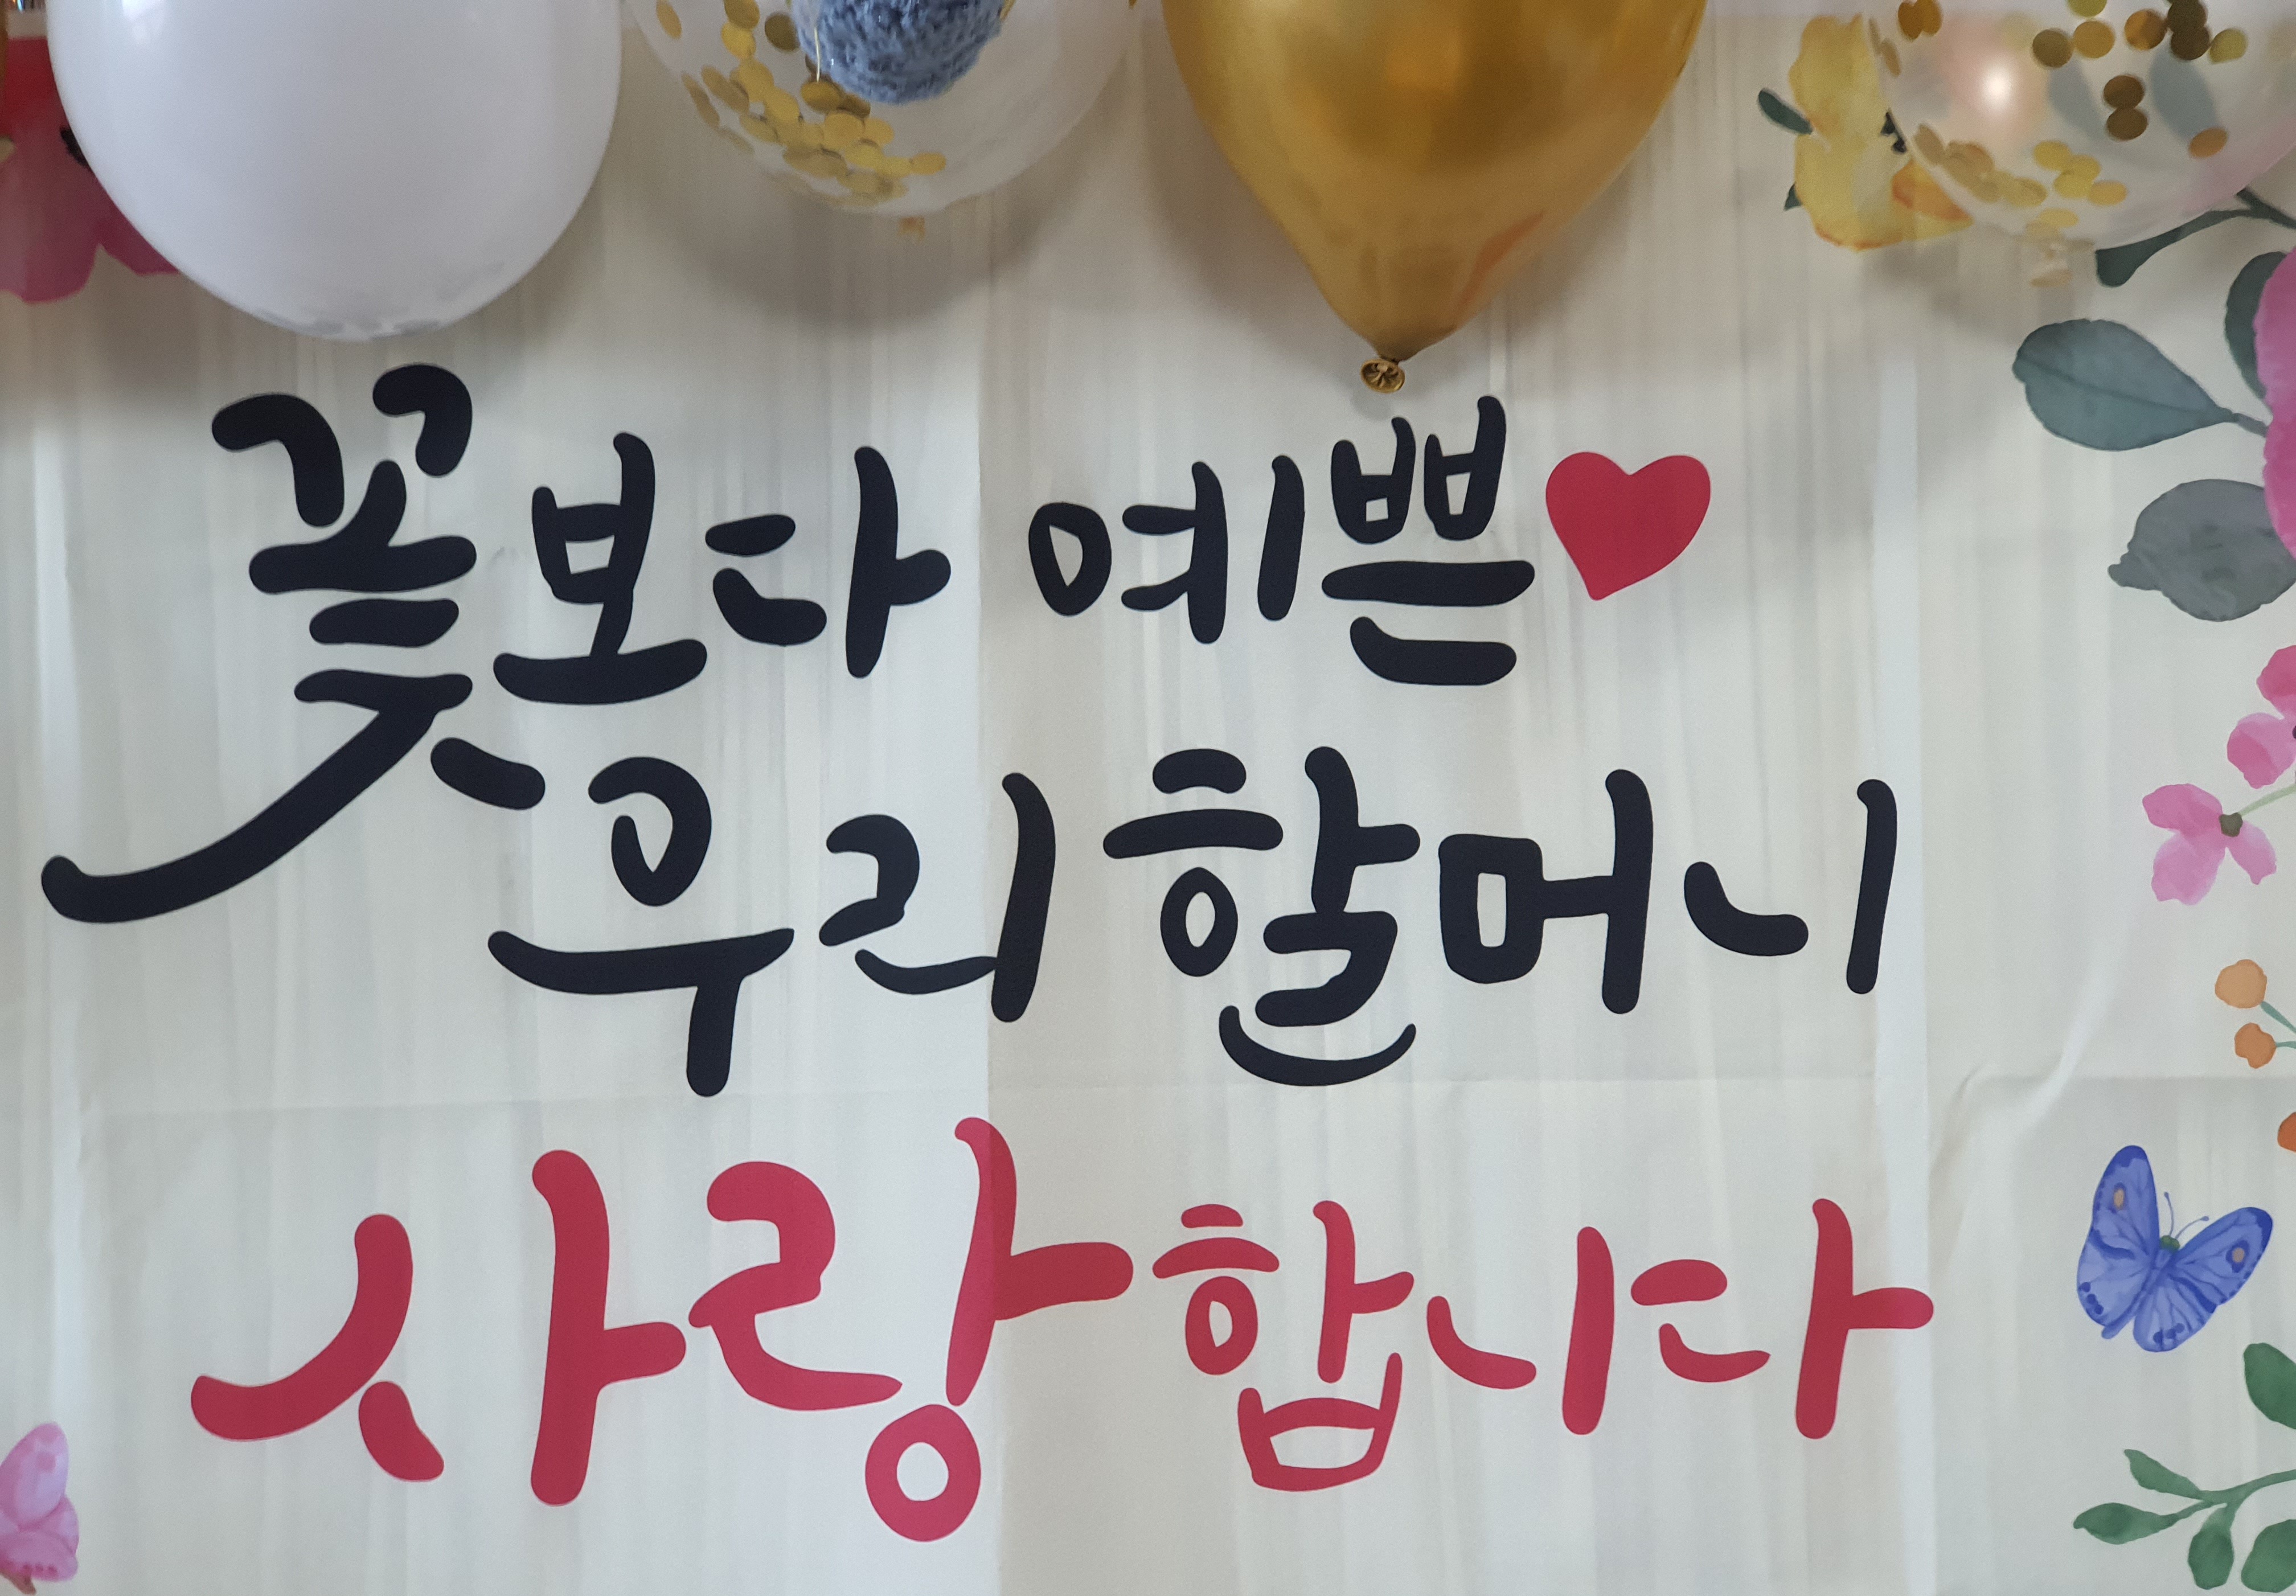 꽃보다 예쁜♥
우리 할머니
사랑합니다